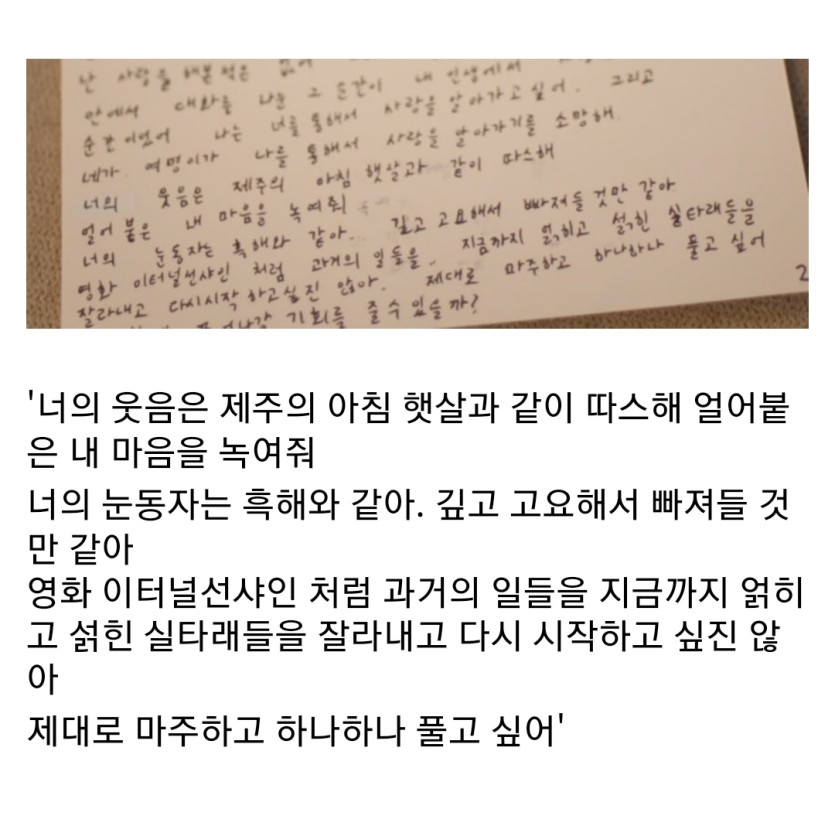 난 사랑을 해본 적은 없어
안에서 대화를 나눈 그 순간이 내 인생에서
순간이었어 나는 너를 통해서 사랑을 알아가고 싶어. 그리고
네가 여명이가 나를 통해서 사랑을 알아가기를 소망해.
너의 웃음은 제주의 아침 햇살과 같이 따스해
얼어 붙은 내 마음을 녹여줘
너의 눈동자는 흑해와 같아. 깊고 고요해서 빠져들 것만 같아
영화 이터널선샤인 처럼 과거의 일들을. 지금까지 얽히고 섥힌 실타래들을
잘라내고 다시시작 하고싶진 않아. 제대로 마주하고 하나하나 풀고 싶어
기회를 줄 수 있을까?
2
'너의 웃음은 제주의 아침 햇살과 같이 따스해 얼어붙
은 내 마음을 녹여줘
너의 눈동자는 흑해와 같아. 깊고 고요해서 빠져들 것
만 같아
영화 이터널선샤인 처럼 과거의 일들을 지금까지 얽히
고 섥힌 실타래들을 잘라내고 다시 시작하고 싶진 않
아
제대로 마주하고 하나하나 풀고 싶어'